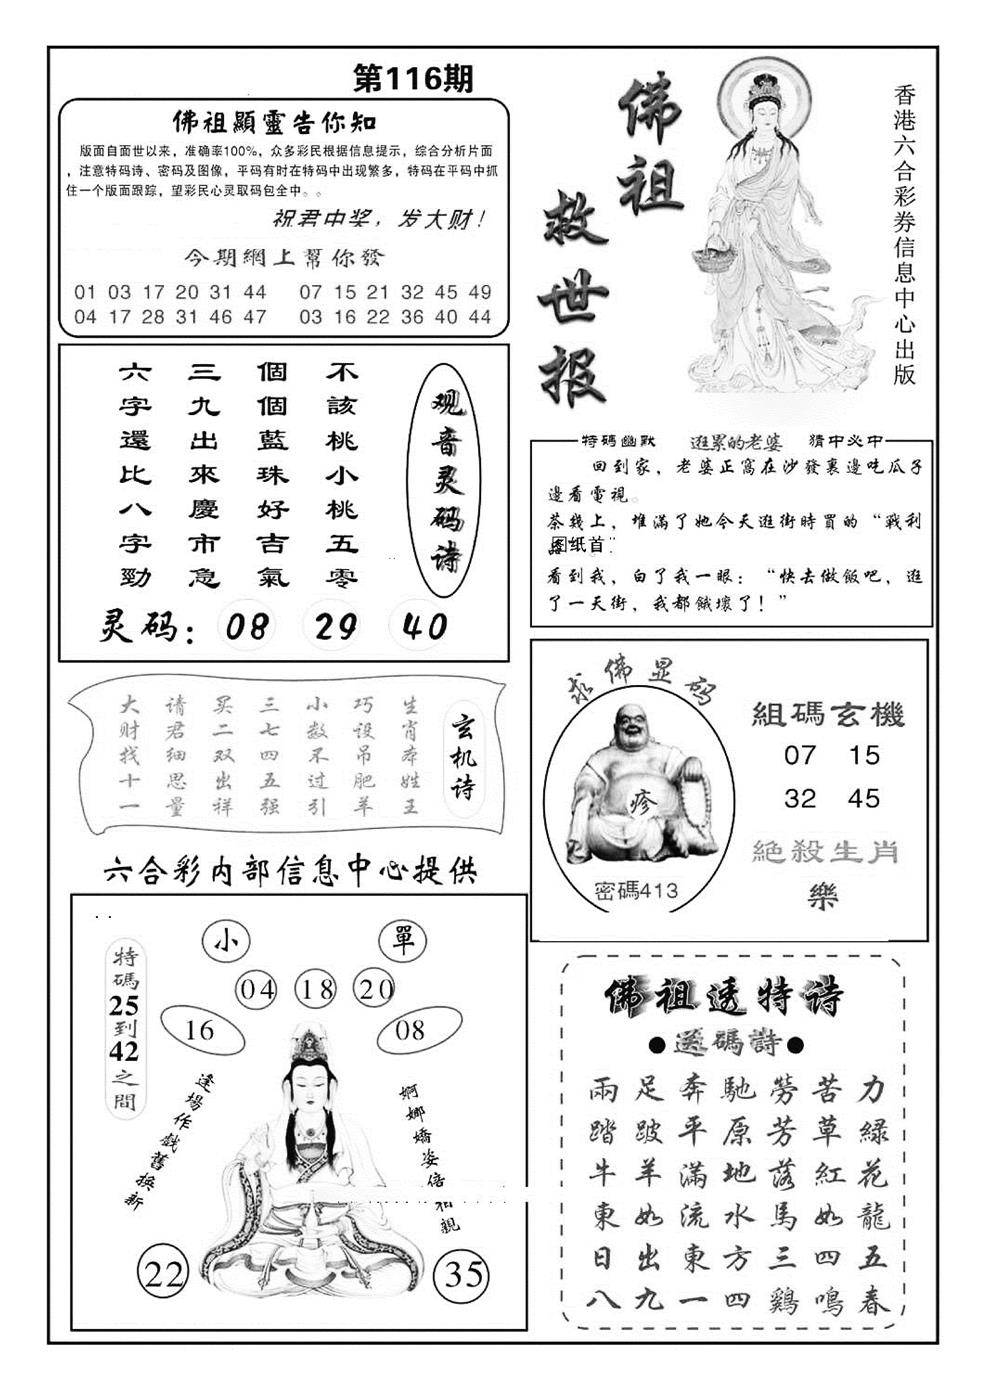 第116期
佛祖顯靈告你知
版面自面世以来，准确率100%，众多彩民根据信息提示，综合分析片面
，注意特码诗、密码及图像，平码有时在特码中出现繁多，特码在平码中抓
住一个版面跟踪，望彩民心灵取码包全中。。
祝君中奖，发大财！
今期網上幫你發
01 03 17 20 31 44 07 15 21 32 45 49
04 17 28 31 46 47 03 16 22 36 40 44
佛祖
救世报
香港六合彩券信息中心出版
观音灵码诗
不該桃小桃五零
個個藍珠好吉氣
三九出來慶市急
六字還比八字勁
灵码：08 29 40
特碼幽默 逛累的老婆 猜中必中
回到家，老婆正窩在沙發裏邊吃瓜子
邊看電視。
茶幾上，堆滿了她今天逛街時買的“戰利
图纸首”
看到我，白了我一眼：“快去做飯吧，逛
了一天街，我都餓壞了！”
玄机诗
生肖本姓王
巧设吊肥羊
小数不过引
三七四五强
买二双出祥
请君细思量
大财找十一
求佛显码
疹
密碼413
組碼玄機
07 15
32 45
絕殺生肖
樂
六合彩内部信息中心提供
小 單
04 18 20
16 08
特碼25到42之間
逢場作戲舊換新
婀娜嬌姿倍相親
22 35
佛祖透特诗
●送碼詩●
兩足奔馳勞苦力
踏跛平原芳草綠
牛羊滿地落紅花
東如流水馬如龍
日出東方三四五
八九一四鷄鳴春